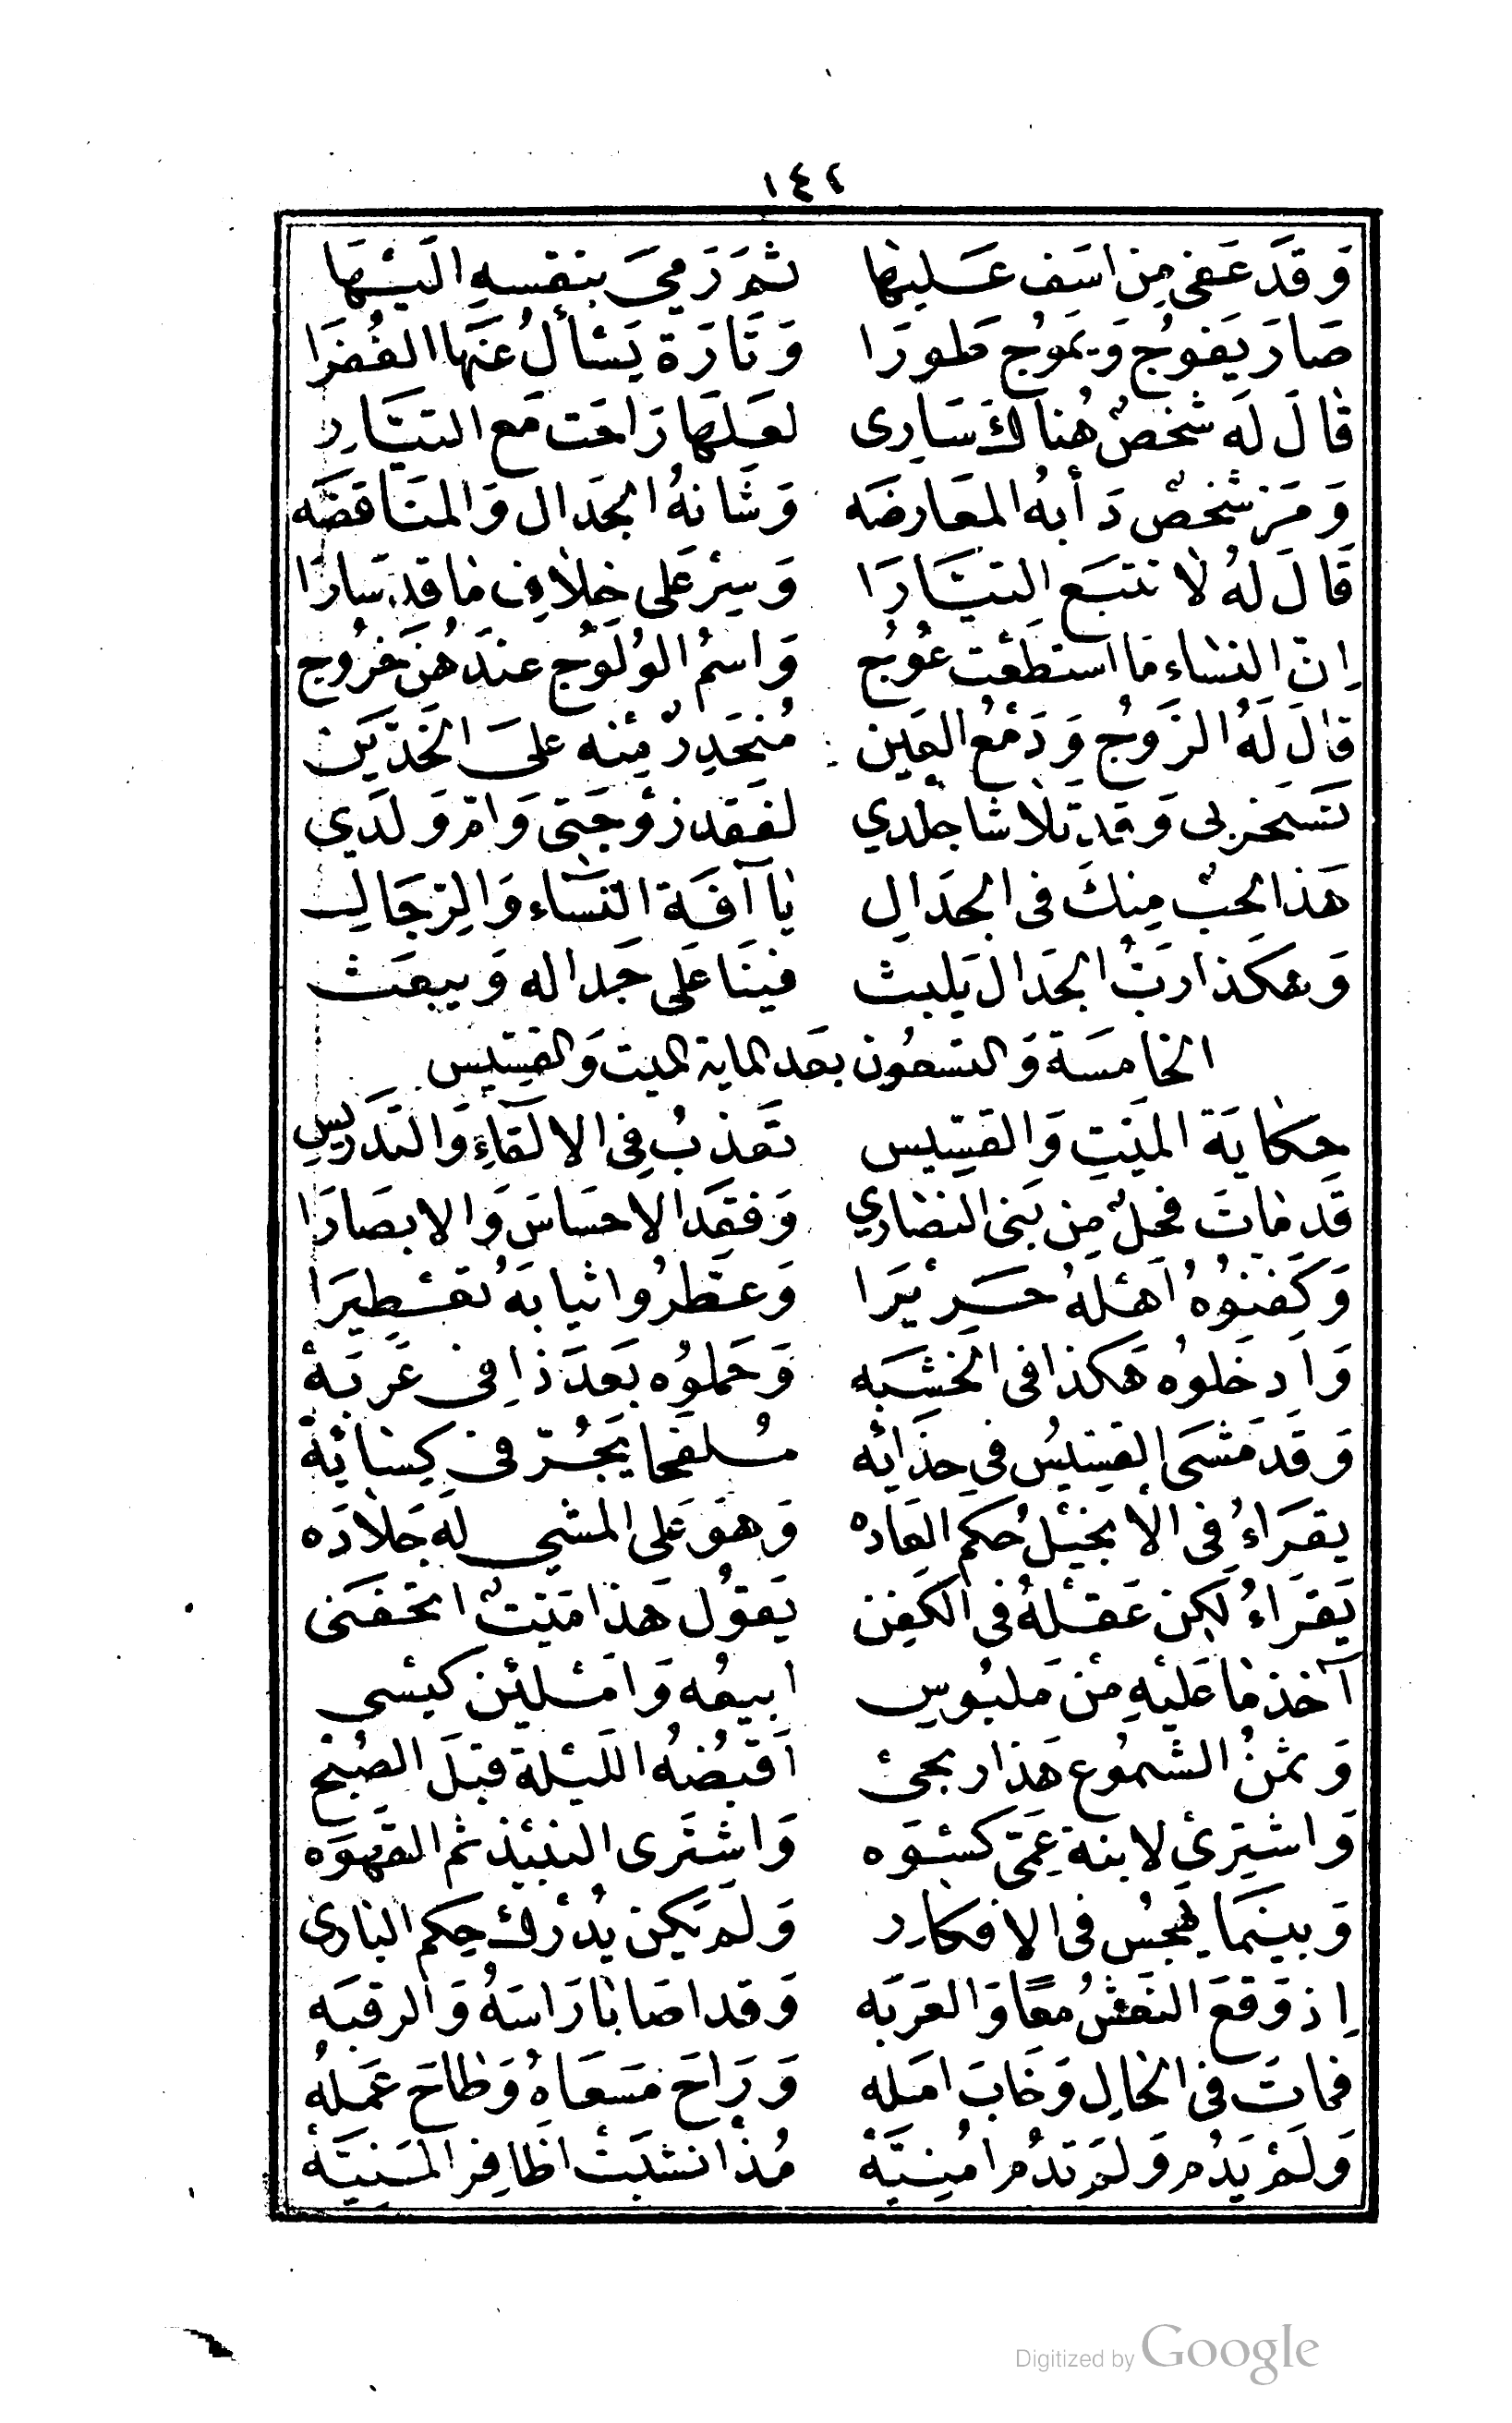 ١٤٢
وَقَد عَفى مِن اسَف عَليهَا ثمَ رَمىَ بنفسهِ الَيْهَا
صَارَ يَغوُج وَيمَوُج طورَا وَتَارَة يَسْأَلُ عَنهَا الغُفَرَا
قالَ لَه شخصٌ هُناكَ سَارِى لعَلهَا رَاحَت مَع التيَّارِ
وَمَر شخصٌ دَأبهُ المعَارضَه وَشَانهُ الجَدال وَالمنَاقضَه
قَالَ لهُ لا تتبَع التيَّارَا وَسِرْ عَلى خلافِ ما قد سَارَا
اِنّ النساء مَا استطَعْت عُوُج وَاسمُ الوُلوُج عندَهُنّ خرُوج
قالَ لَهُ الزَوجُ وَدَمْعُ العَين مُنحَدِرٌ مِنْه علىَ الخَدّيَن
تَسَخر بى وَقَد تلاشا جلدي لفَقد زوْجَتى وَامّ وَلَدي
هَذا الحبّ مِنكَ فى الجدَالِ يا آفَة النسَاء وَالرّجَالِ
وَهكَذا رَبّ الجدَال يَلبث فينَا عَلى جَداله وَيبعَث
الخامسَة وَالتسعُون بعَد الماية الميت وَالقسّيس
حِكايَة الميَتِ وَالقسّيس تَعذبُ فِى الالقَاءِ وَالتَدريسِ
قَد ماتَ فحلٌ مِن بَنى النصَاري وَفقدَ الاحسَاسَ وَالابصَارَا
وَكَفنوُهُ اَهْلهُ حَريْرَا وَعطّرُوا ثيابَهُ تعْطِيرَا
وَادخَلوُه هَكذا فى الخَشَبَه وَحَملوُه بَعدَ ذا فِى عَرَبَهْ
وَقَد مَشَى القسّيسُ فى حِذَائِه مُلفحا يَجُرّ فى كِسَائِهْ
يقرَاءُ فى الأنجيْل حُكم العَاده وَهوَ عَلى المشى لَه جَلادَه
يَقرَاءُ لكِن عَقْلهُ فى الكَفن يَقوُل هَذا مَيّتٌ اتحفَنى
آخذ مَا عَليْهِ مِنْ مَلبُوسِ ابيعُه وَامْلَيْن كيْسى
وَثمَنُ الشمُوع هَذا ربحئ اَقبُضهُ اللَيْلة قبَلَ الصُبْح
وَاشترِئ لابنة عَمّى كسْوَه وَاشتَرى النبيْذ ثم القهوَه
وَبينمَا يهْجسُ فى الافكارِ وَلَم يَكن يُدْرك حِكم البارى
اِذ وَقعَ النعَشُ معًا وَالعَرَبَه وَقد اصَابا رَاسَهُ وَالرقبَه
فماتَ فى الحالِ وَخَابَ امَله وَرَاحَ مَسعَاهُ وَطاحَ عَمَلهُ
وَلَمْ يَدُم وَلَم تَدُم امْنِيّهْ مُذ انشبَتْ اظَافِر المَنِيّهْ
Digitized by Google